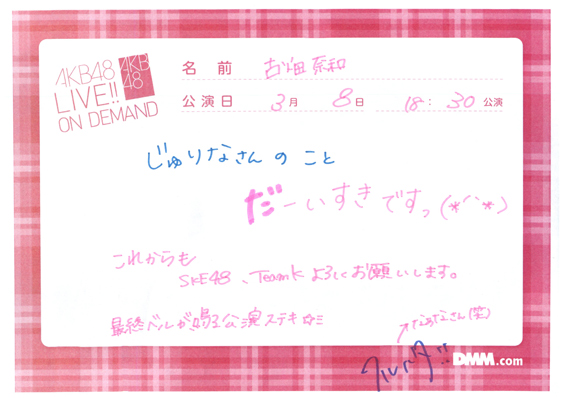 AKB48
LIVE!!
ON DEMAND
AKB
48
名 前 古畑奈和
公演日 3月 8日 18:30公演
じゅりなさんの こと
だーいすきですっ(*´`*)
これからも
SKE48、TeamK よろしくお願いします。
最終ベルが鳴る公演ステキ☆ミ
DMM.com